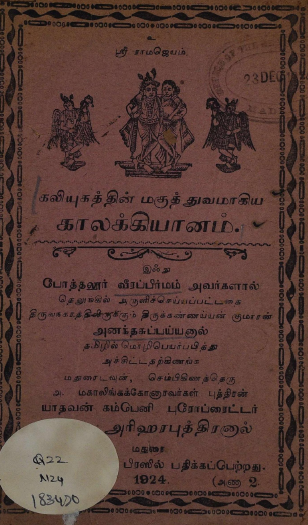 உ
ஸ்ரீ ராமஜெயம்.
23 DEC
கலியுகத்தின் மகுத்துவமாகிய
காலக்கியானம்.
இஃது
போத்தலூர் வீரப்பிர்மம் அவர்களால்
தெலுங்கில் அருளிச்செய்யப்பட்டதை
குமாரன்
அனந்தசுப்பய்யனால்
தமிழில் மொழிபெயர்பபித்து
அச்சிட்டதற்கிணங்க
மதுரைடவுன், செம்பிணைத்தெரு
அ. மகாலிங்கக்கோனாரவர்கள் புத்திரன்
யாதவன் கம்பெனி புரோப்ரைட்டர்
அரிஹரபுத்திரனால்
மதுரை
பிரஸில் பதிக்கப்பெற்றது.
1924. (அணா 2
Q22
M24
183400